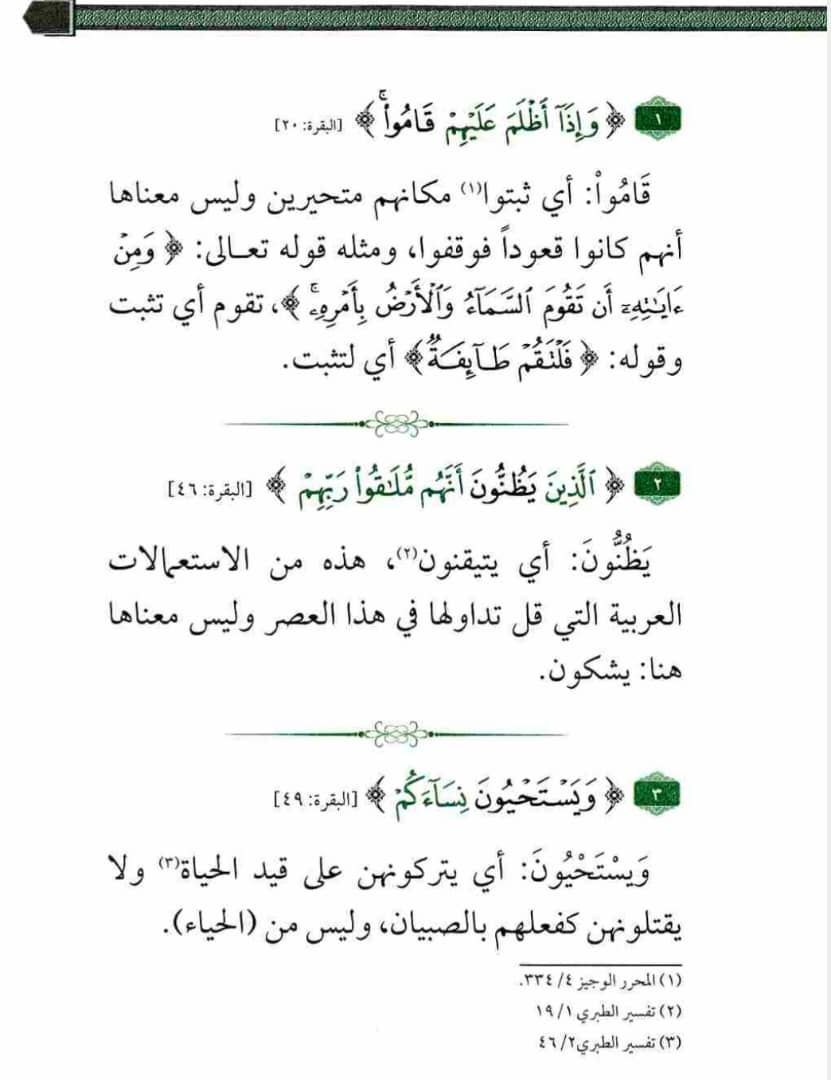 ١ ﴿ وَإِذَآ أَظْلَمَ عَلَيْهِمْ قَامُوا۟ ۚ ﴾ [البقرة: ٢٠]
قَامُواْ: أي ثبتوا(١) مكانهم متحيرين وليس معناها
أنهم كانوا قعوداً فوقفوا، ومثله قوله تعالى: ﴿ وَمِنْ
ءَايَـٰتِهِۦٓ أَن تَقُومَ ٱلسَّمَآءُ وَٱلْأَرْضُ بِأَمْرِهِۦ ۚ ﴾، تقوم أي تثبت
وقوله: ﴿ فَلْتَقُمْ طَآئِفَةٌ ﴾ أي لتثبت.
٢ ﴿ ٱلَّذِينَ يَظُنُّونَ أَنَّهُم مُّلَـٰقُوا۟ رَبِّهِمْ ﴾ [البقرة: ٤٦]
يَظُنُّونَ: أي يتيقنون(٢)، هذه من الاستعمالات
العربية التي قل تداولها في هذا العصر وليس معناها
هنا: يشكون.
٣ ﴿ وَيَسْتَحْيُونَ نِسَآءَكُمْ ﴾ [البقرة: ٤٩]
وَيسْتَحْيُونَ: أي يتركونهن على قيد الحياة(٣) ولا
يقتلونهن كفعلهم بالصبيان، وليس من (الحياء).
(١) المحرر الوجيز ٤/ ٣٣٤.
(٢) تفسير الطبري ١/ ١٩
(٣) تفسير الطبري٢/ ٤٦